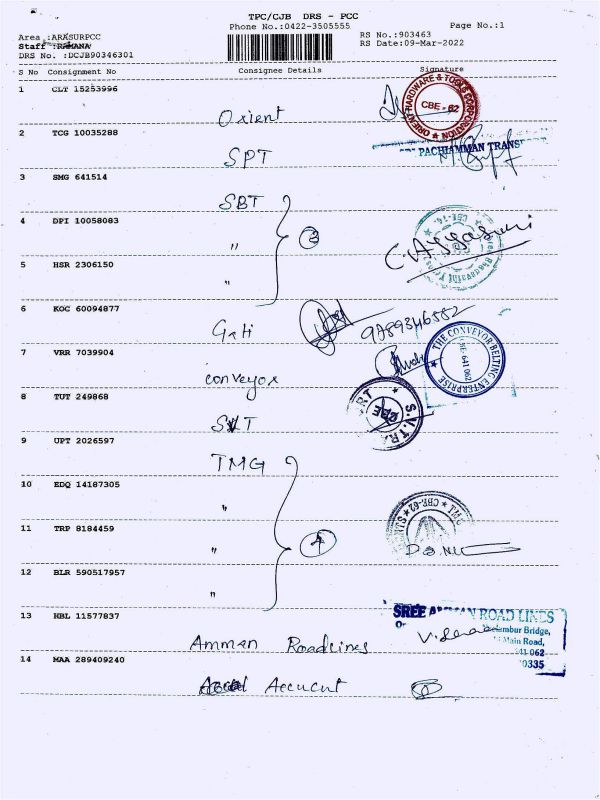 TPC/CJB DRS - PCC
Phone No.:0422-3505555 Page No.:1
Area :ARASURPCC RS No.:903463
Staff :RAMANA RS Date:09-Mar-2022
DRS No. :DCJB90346301
S No Consignment No Consignee Details Signature
1 CLT 15253996 Orient
ORIENT HARDWARE & TOOLS CORPORATION
CBE - 62
2 TCG 10035288 SPT
PACHIAMMAN TRANS
3 SMG 641514 SBT
4 DPI 10058083 " 3
5 HSR 2306150 "
6 KOC 60094877 Gati 9789346582
7 VRR 7039904 conveyor
THE CONVEYOR BELTING ENTERPRISE
641 062
8 TUT 249868 SVT
S.V.TRA
CBE
9 UPT 2026597 TMG
10 EDQ 14187305 "
11 TRP 8184459 " 4
CBE-62
12 BLR 590517957 "
13 HBL 11577837 Amman Roadlines
SREE AMMAN ROAD LINES
Bridge,
Main Road,
641 062
0335
14 MAA 289409240 Accucut